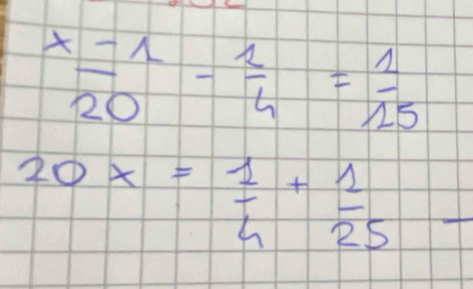 x - 1 / 20 - 1/4 = 1/15
20 x = 1/4 + 1/25 -